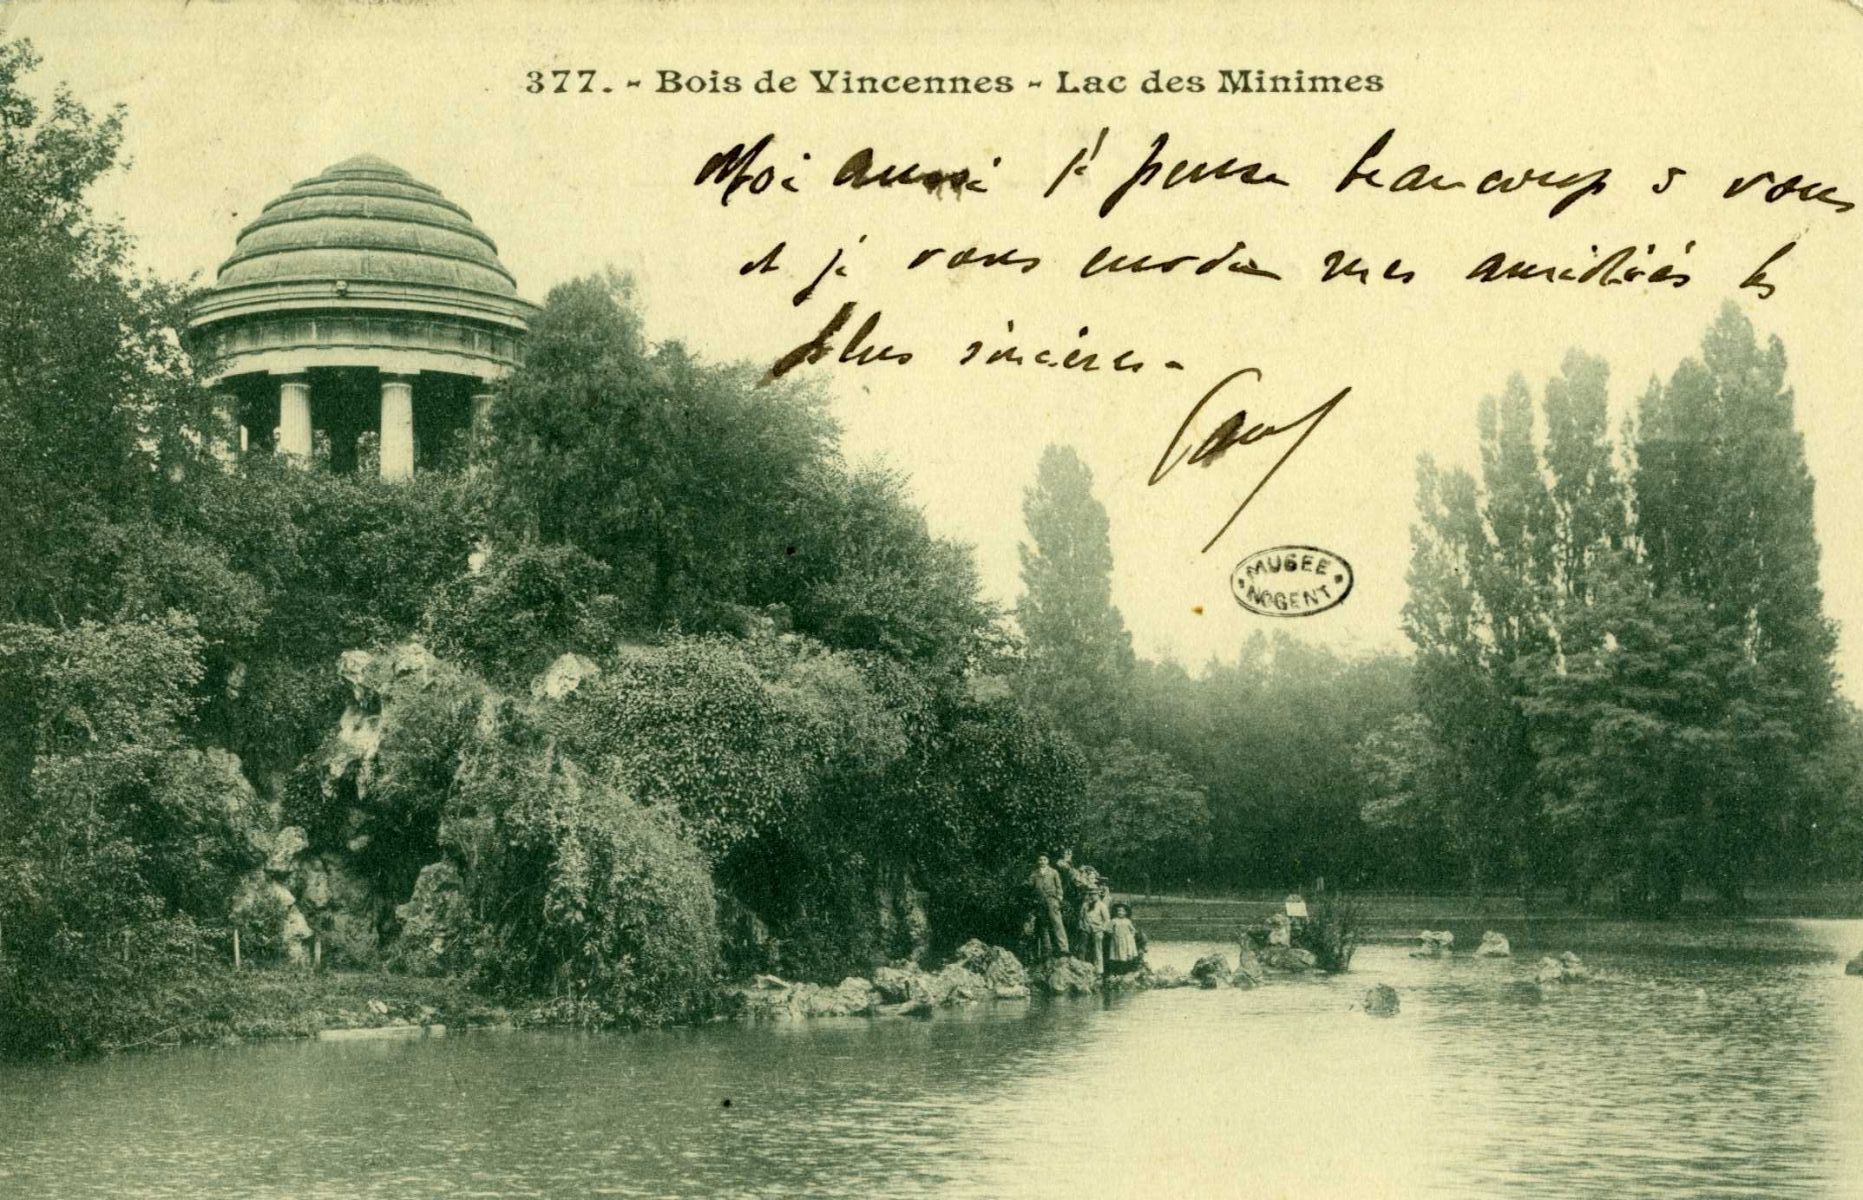 377. - Bois de Vincennes - Lac des Minimes
Moi aussi je pense beaucoup à vous
et je vous envoie mes amitiés les
plus sincères -
Paul
MUSEE
NOGENT